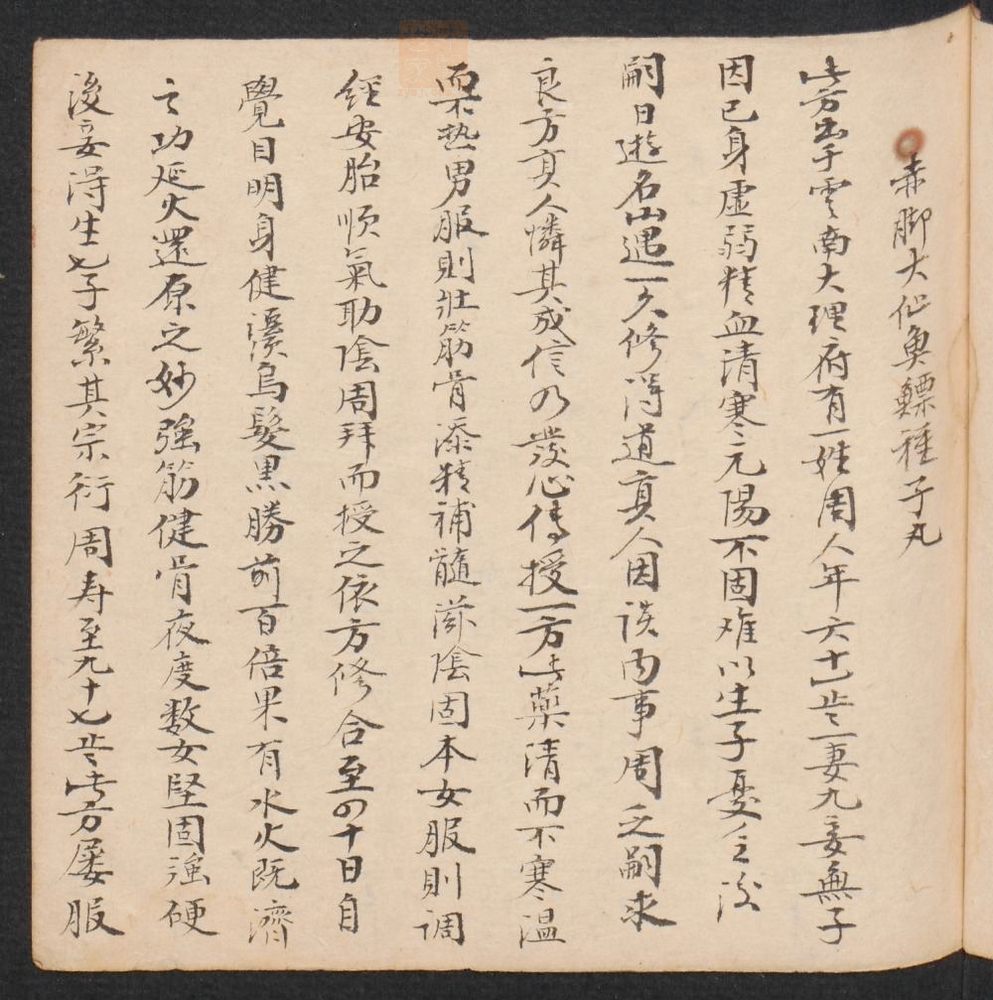 赤脚大仙魚鰾種子丸
此方出于雲南大理府有一姓周人年六十七岁一妻九妾無子
因已身虛弱精血清寒元陽不固难以生子憂之
嗣日遊名山遇一久修得道真人因谈内事周之嗣求
良方真人憐其成信乃發心傳授一方此藥清而不寒温
而不热男服則壯筋骨添精補髓滋陰固本女服則调
經安胎順氣助陰周拜而授之依方修合至四十日自
覺目明身健溪烏髮黑勝前百倍果有水火既濟
之功延火還原之妙強筋健骨夜度数女堅固強硬
後妾得生七子繁其宗衍周寿至九十七岁此方屡服